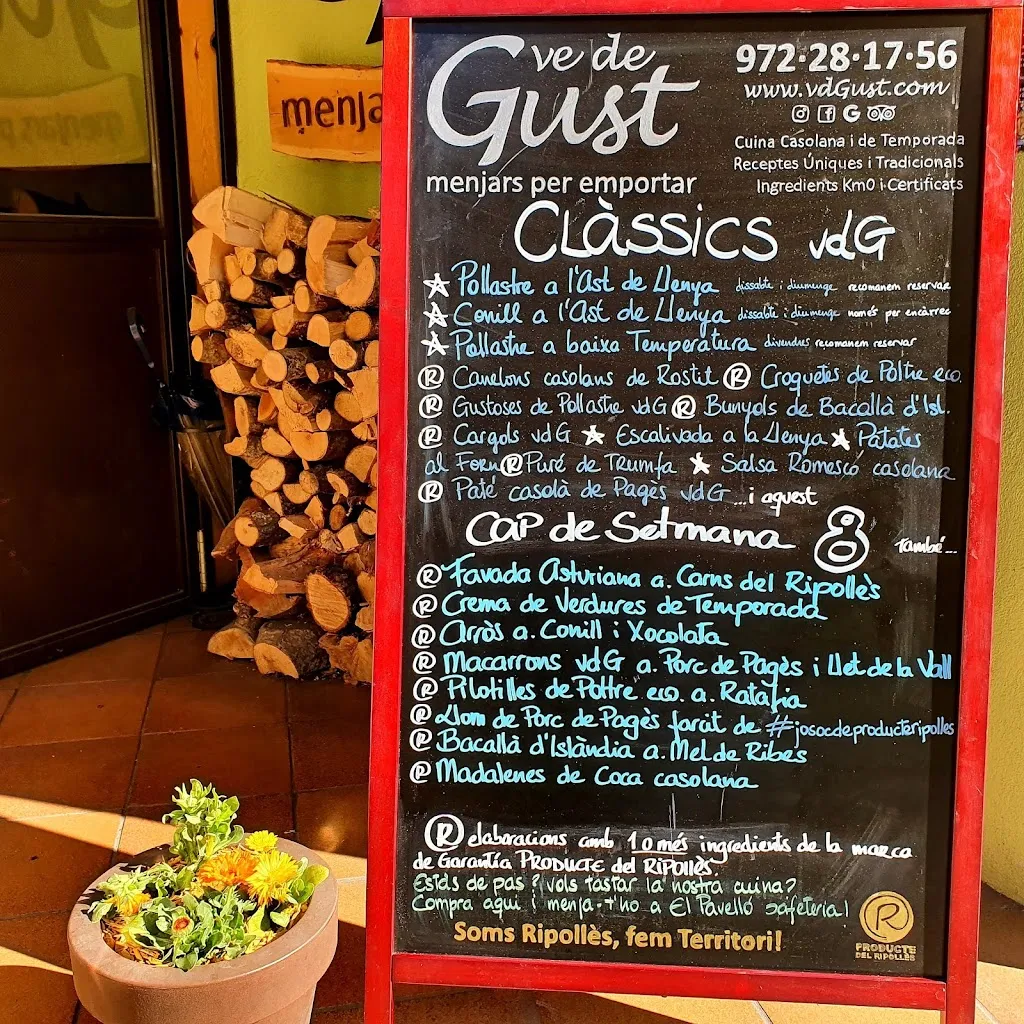 menja
ve de
Gust
menjars per emportar
972·28·17·56
www.vdGust.com
Cuina Casolana i de Temporada
Receptes Úniques i Tradicionals
Ingredients Km0 i Certificats
CLÀSSICS vdG
Pollastre a l'Ast de Llenya dissabte i diumenge recomanem reservar
Conill a l'Ast de Llenya dissabte i diumenge només per encàrrec
Pollastre a baixa Temperatura divendres recomanem reservar
® Canelons casolans de Rostit ® Croquetes de Poltre eco.
® Gustoses de Pollastre vdG ® Bunyols de Bacallà d'Isl.
® Cargols vdG ★ Escalivada a la Llenya ★ Patates
al Forn ® Puré de Trumfa ★ Salsa Romesco casolana
® Paté casolà de Pagès vdG...i aquest
CAP de Setmana 8 també...
® Favada Asturiana a. Carns del Ripollès
® Crema de Verdures de Temporada
® Arròs a. Conill i Xocolata
® Macarrons vdG a. Porc de Pagès i Llet de la Vall
® Pilotilles de Poltre eco. a. Ratafia
® Llom de Porc de Pagès farcit de #josocdeproducteripolles
® Bacallà d'Islàndia a. Mel de Ribes
® Madalenes de Coca casolana
® elaboracions amb 1 o més ingredients de la marca
de Garantia PRODUCTE del RIPOLLÈS.
Estàs de pas? vols tastar la nostra cuina?
Compra aquí i menja-t'ho a El Pavelló cafeteria!
Soms Ripollès, fem Territori!
R
PRODUCTE
DEL RIPOLLÈS